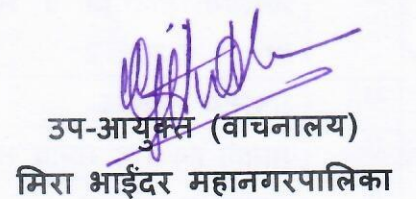 उप-आयुक्त (वाचनालय)
मिरा भाईंदर महानगरपालिका